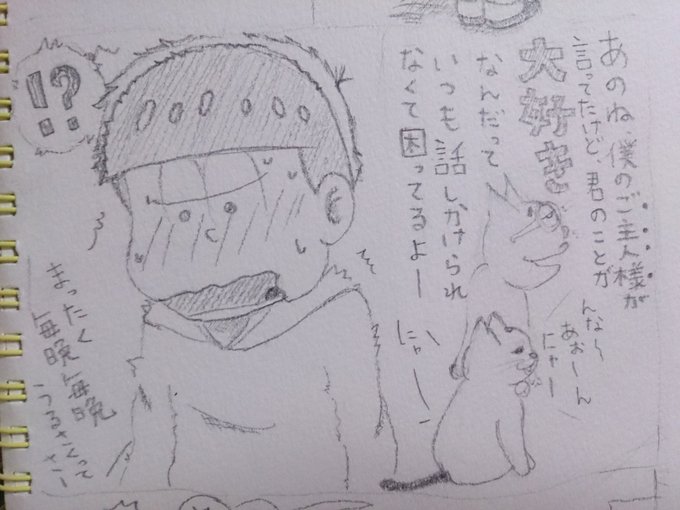 あのね、僕のご主人様が
言ってたけど、君のことが
大好き
なんだって
いつも話しかけられ
なくて困ってるよー
んな〜
あぉーん
にゃー
にゃーー
!?
まったく
毎晩毎晩
うるさくってさー